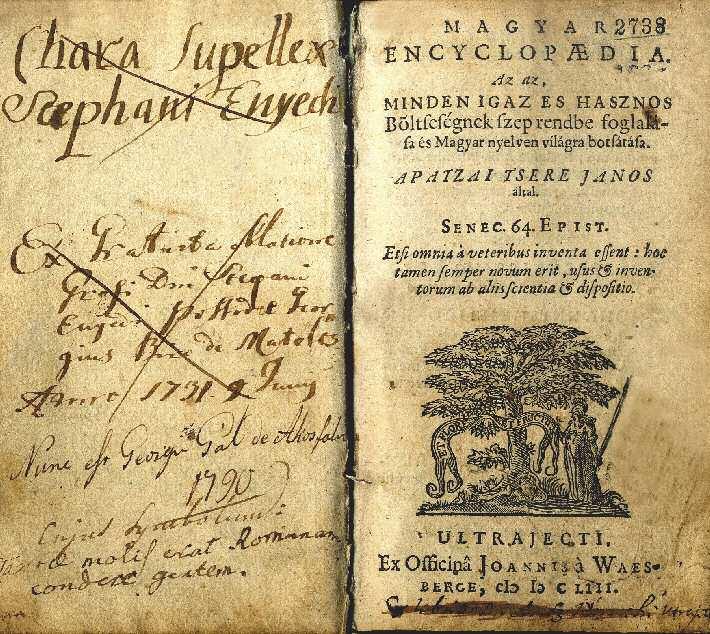 Chara Supellex
Stephani Enyedi
Ex Gratuita oblatione
Enyedi possidet Geor
gius de
Anno 1731. 9 Junij
Nunc est Georgii Gál de
1790
Cujus Symbolum:
molis erat Romanam
condere gentem.
MAGYAR 2738
ENCYCLOPÆDIA.
Az az,
MINDEN IGAZ ES HASZNOS
Bőltseségnek szep rendbe foglalá-
sa és Magyar nyelven világra botsátása.
APATZAI TSERE JANOS
által.
SENEC. 64. EPIST.
Etsi omnia à veteribus inventa essent: hoc
tamen semper novum erit, usus & inven-
torum ab aliis scientia & dispositio.
ULTRAJECTI.
Ex Officinâ JOANNIS à WAES-
BERGE, cIↄ Iↄ C LIII.